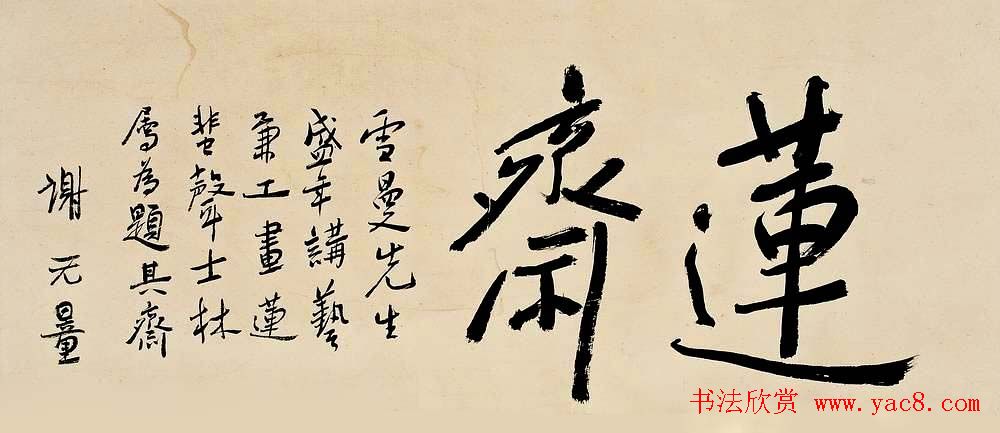 蓮齋
雪曼先生
盛年講藝
兼工畫蓮
蜚聲士林
屬為題其齋
謝无量
书法欣赏 www.yac8.com